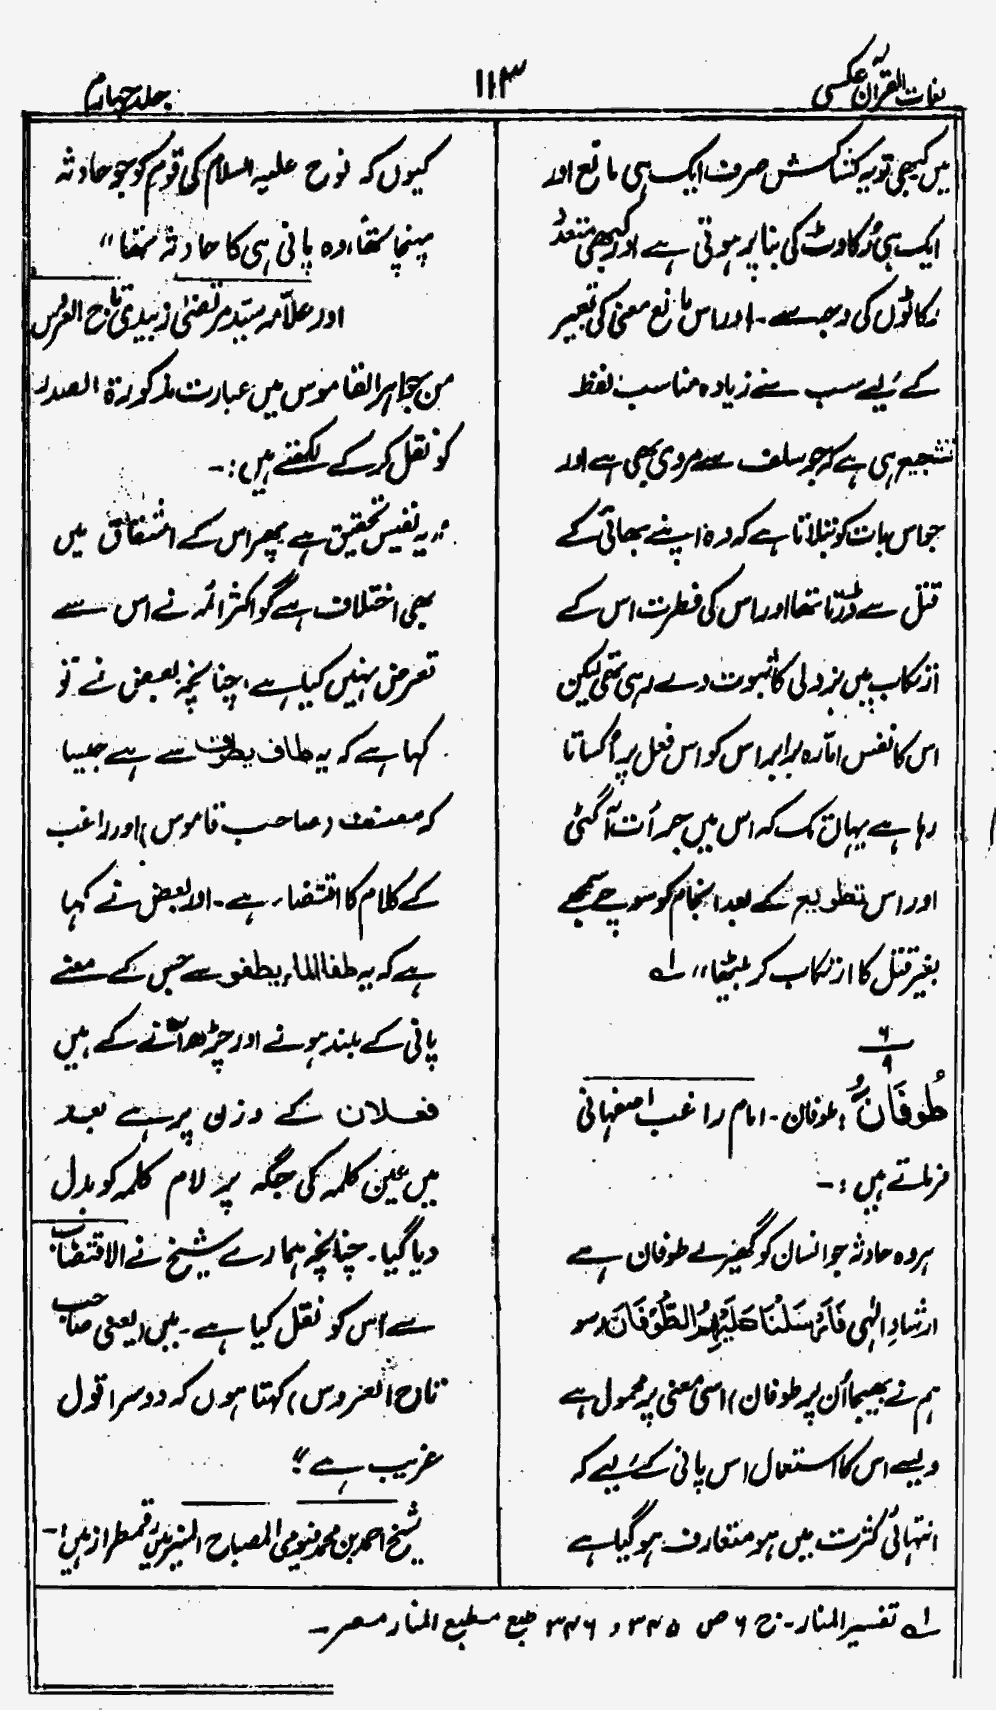 لغات القرآن عکسی
۱۱۳
جلد چہارم
میں کبھی تو یہ کشاکش صرف ایک ہی مانع اور
ایک ہی رُکاوٹ کی بنا پر ہوتی ہے اور کبھی متعدد
رکاٹوں کی وجہ سے۔ اور اس مانع معنی کی تعبیر
کے لیے سب سے زیادہ مناسب لفظ
تشجیع ہی ہے کہ جو سلف سے مروی بھی ہے اور
جو اس بات کو بتلاتا ہے کہ وہ اپنے بھائی کے
قتل سے ڈرتا تھا اور اس کی فطرت اس کے
ارتکاب میں بزدلی کا ثبوت دے رہی تھی لیکن
اس کا نفس امّارہ برابر اس کو اس فعل پر اُکساتا
رہا ہے یہاں تک کہ اس میں جرأت آگئی
اور اس تطویع کے بعد انجام کو سوچے سمجھے
بغیر قتل کا ارتکاب کر بیٹھا" لہ
۶
۹
طُوفَانٌ: طوفان۔ امام راغب اصفہانی
فرماتے ہیں :۔
ہر وہ حادثہ جو انسان کو گھیرلے طوفان ہے
ارشادِ الٰہی فَاَرْسَلْنَا عَلَیْہِمُ الطُّوْفَانَ (سو
ہم نے بھیجا اُن پر طوفان) اسی معنی پر محمول ہے
ویسے اس کا استعمال اس پانی کے لیے کہ
انتہائی کثرت میں ہو متعارف ہوگیا ہے
کیوں کہ نوح علیہ السلام کی قوم کو جو حادثہ
پہنچا تھا وہ پانی ہی کا حادثہ تھا"
اور علاّمہ سید مرتضیٰ زبیدی تاج العروس
من جواہر القاموس میں عبارت مذکورۃ الصدر
کو نقل کرکے لکھتے ہیں :۔
"یہ نفیس تحقیق ہے پھر اس کے اشتقاق میں
بھی اختلاف ہے گو اکثر ائمہ نے اس سے
تعرض نہیں کیا ہے، چنانچہ بعض نے تو
کہا ہے کہ یہ طاف یطوف سے ہے جیسا
کہ مصنف (صاحب قاموس) اور راغب
کے کلام کا اقتضاء ہے۔ اور بعض نے کہا
ہے کہ یہ طفا الماء یطفو سے جس کے معنے
پانی کے بلند ہونے اور چڑھ آنے کے ہیں
فعلان کے وزن پر ہے بعد
میں عین کلمہ کی جگہ پر لام کلمہ کو بدل
دیا گیا۔ چنانچہ ہمارے شیخ نے الاقتضاب
سے اس کو نقل کیا ہے۔ میں (یعنی صاحب
تاج العروس) کہتا ہوں کہ دوسرا قول
غریب ہے"
شیخ احمد بن محمد فیومی المصباح المنیر میں رقمطراز ہیں:۔
لہ تفسیر المنار۔ ج ۶ ص ۳۴۵ و ۳۴۶ طبع مطبع المنار مصر۔